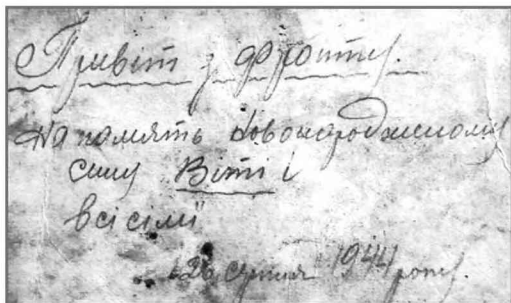 Привіт з фронту.
На память новонародженому
сину Віті і
всі сімї
26 серпня 1944 року.